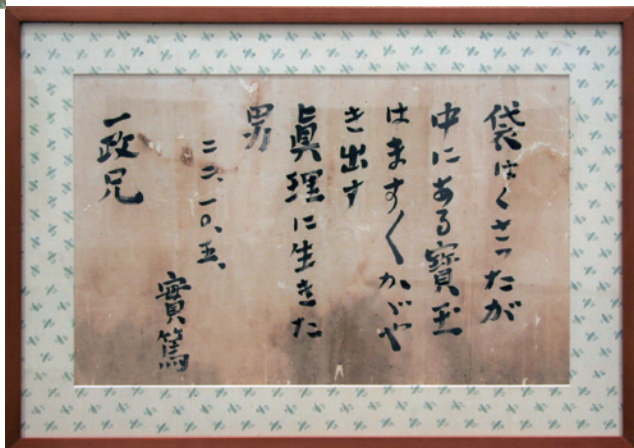 袋はくさったが
中にある寳玉
はます〱かゞや
き出す
眞理に生きた
男
二六、一〇、五、
實篤
一政兄